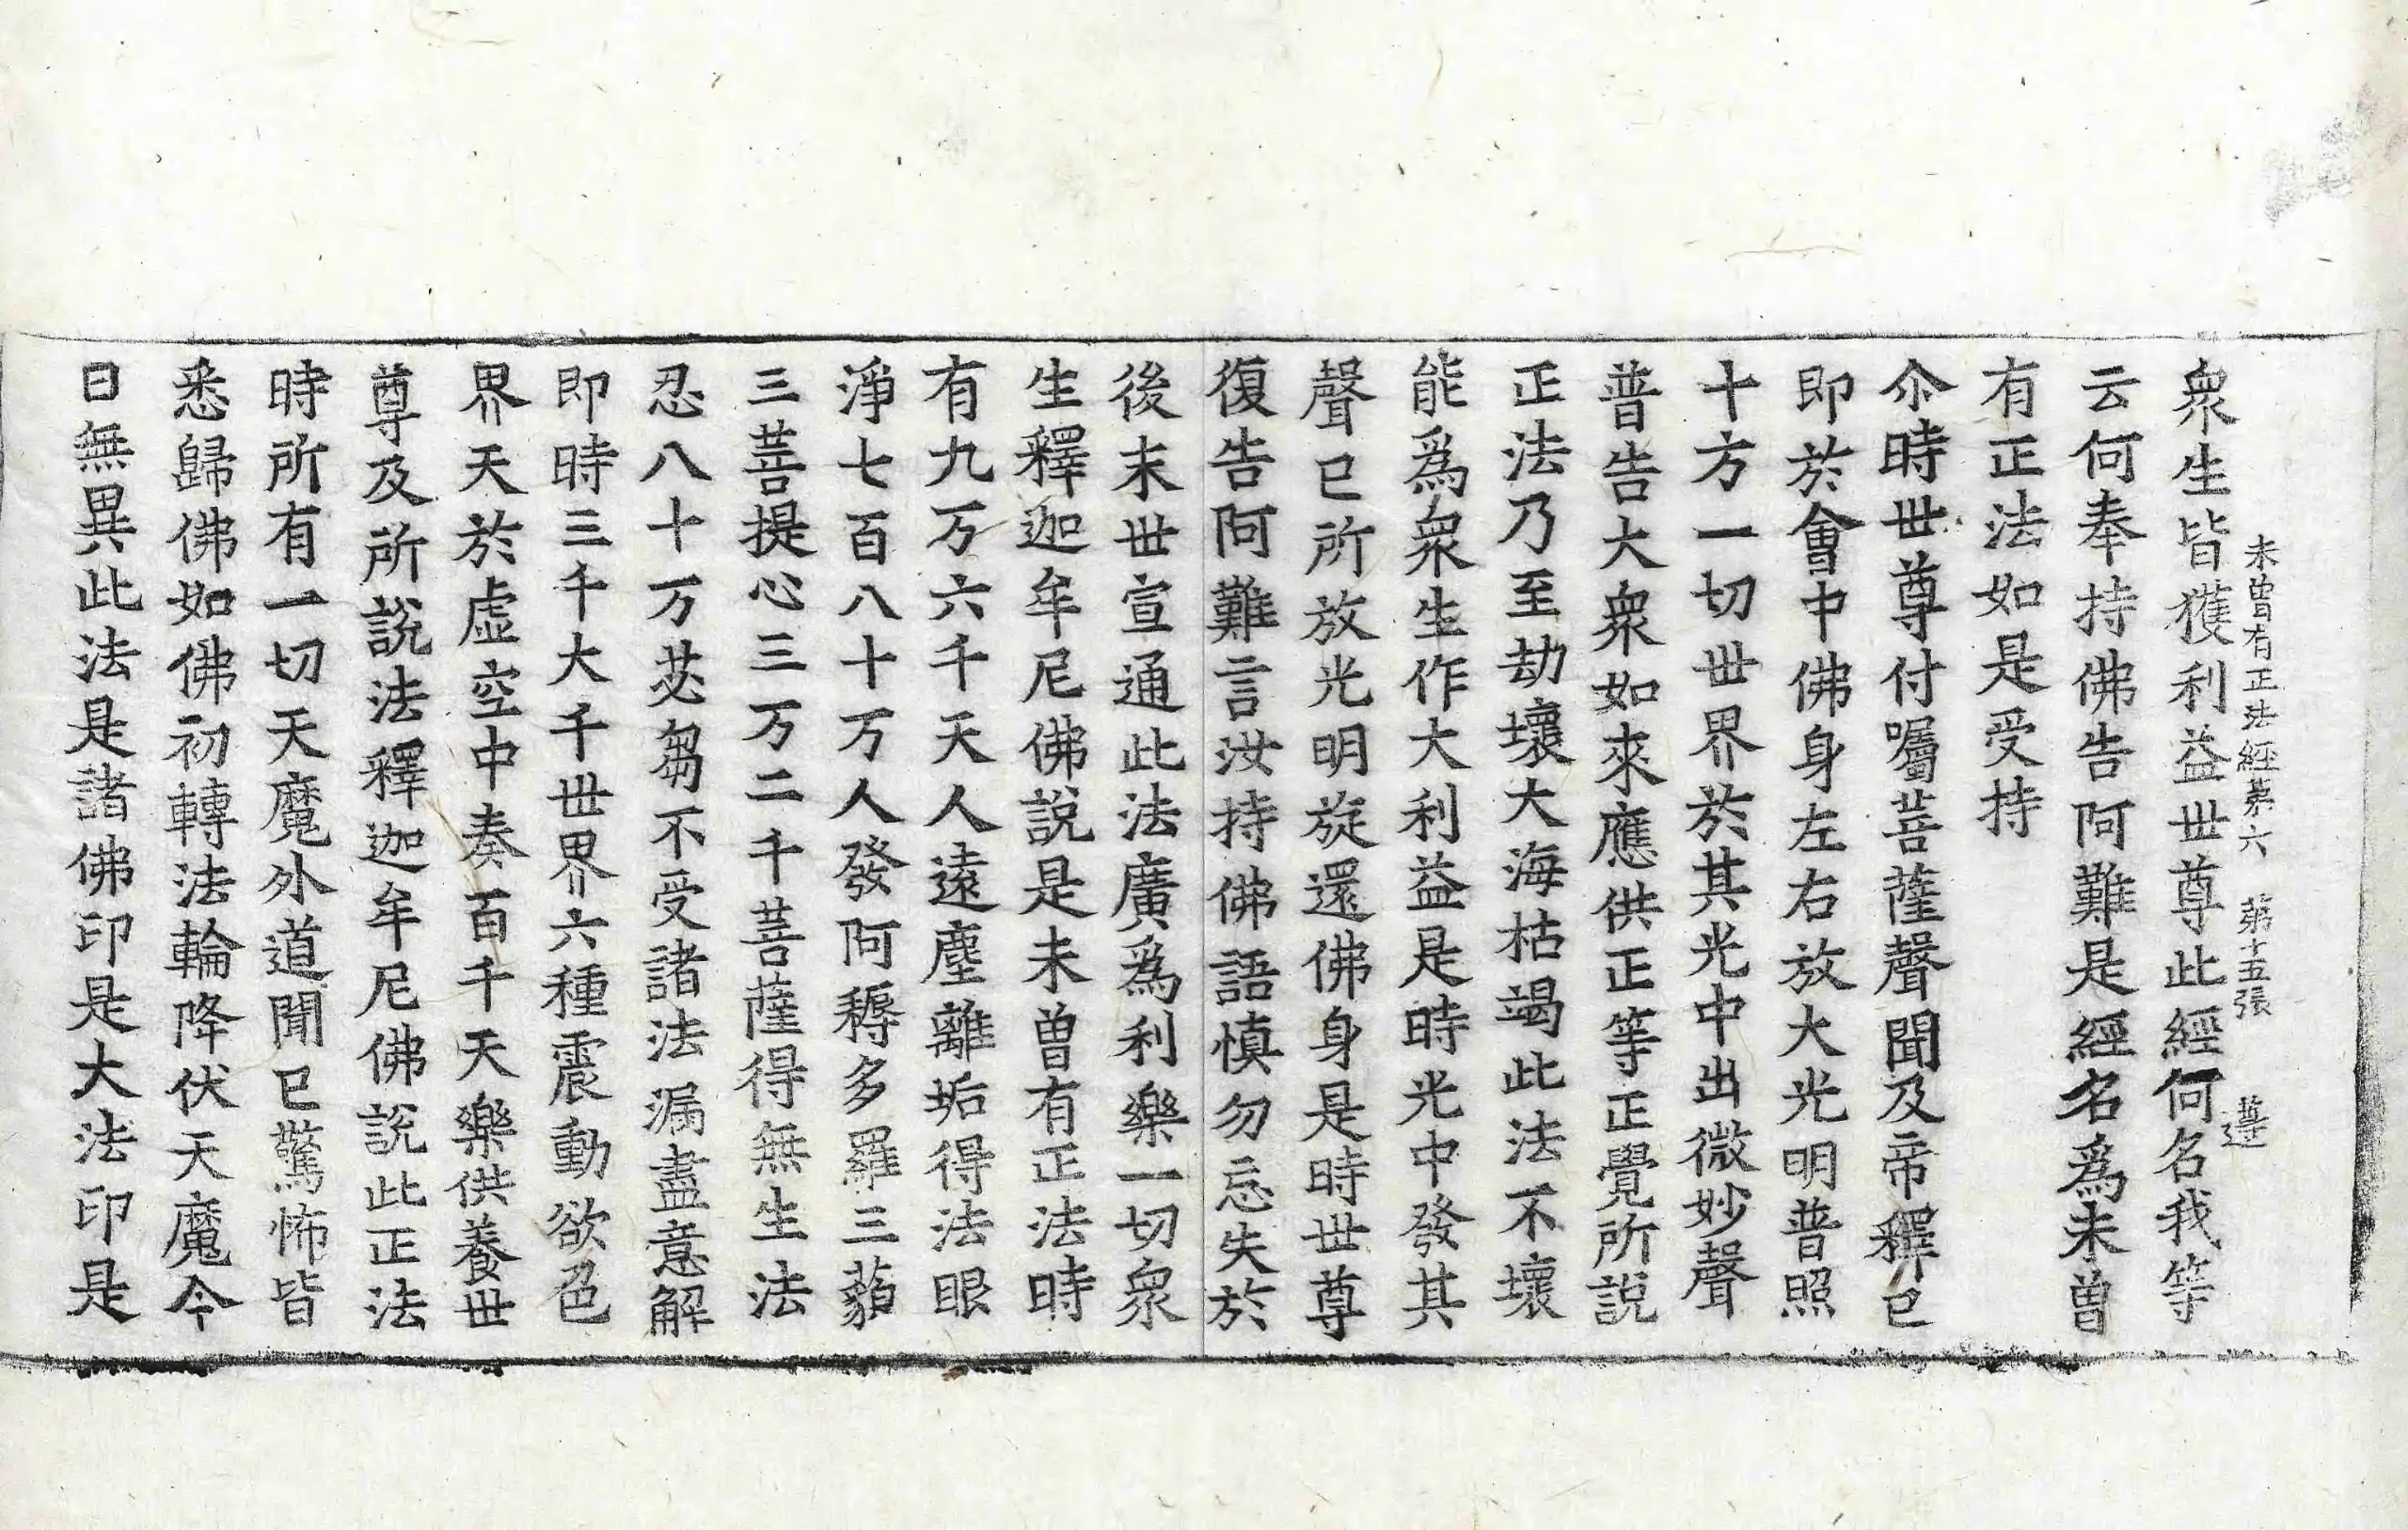 未曾有正法經第六 第十五張 薘
衆生皆獲利益世尊此經何名我等
云何奉持佛告阿難是經名爲未曽
有正法如是受持
尒時世尊付囑菩薩聲聞及帝釋已
即於會中佛身左右放大光明普照
十方一切世界於其光中出微妙聲
普告大衆如來應供正等正覺所說
正法乃至劫壞大海枯竭此法不壞
能爲衆生作大利益是時光中發其
聲已所放光明旋還佛身是時世尊
復告阿難言汝持佛語慎勿忘失於
後末世宣通此法廣爲利樂一切衆
生釋迦牟尼佛說是未曽有正法時
有九万六千天人遠塵離垢得法眼
淨七百八十万人發阿耨多羅三藐
三菩提心三万二千菩薩得無生法
忍八十万苾芻不受諸法漏盡意解
即時三千大千世界六種震動欲色
界天於虛空中奏百千天樂供養世
尊及所說法釋迦牟尼佛說此正法
時所有一切天魔外道聞已驚怖皆
悉歸佛如佛初轉法輪降伏天魔今
日無異此法是諸佛印是大法印是